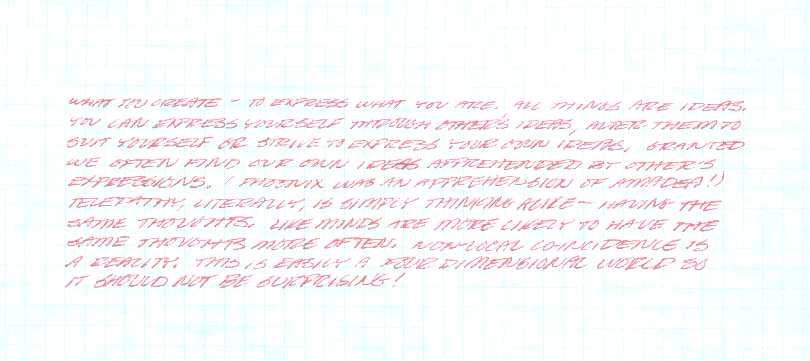 WHAT YOU CREATE - TO EXPRESS WHAT YOU ARE. ALL THINGS ARE IDEAS.
YOU CAN EXPRESS YOURSELF THROUGH OTHER'S IDEAS, ALTER THEM TO
SUIT YOURSELF OR STRIVE TO EXPRESS YOUR OWN IDEAS, GRANTED
WE OFTEN FIND OUR OWN IDEAS APPREHENDED BY OTHER'S
EXPRESSIONS. (PHOENIX WAS AN APPREHENSION OF AMADEA!)
TELEPATHY, LITERALLY, IS SIMPLY THINKING ALIKE - HAVING THE
SAME THOUGHTS. LIKE MINDS ARE MORE LIKELY TO HAVE THE
SAME THOUGHTS MORE OFTEN. NON-LOCAL CO-INCIDENCE IS
A REALITY. THIS IS EASILY A FOUR DIMENSIONAL WORLD SO
IT SHOULD NOT BE SURPRISING!